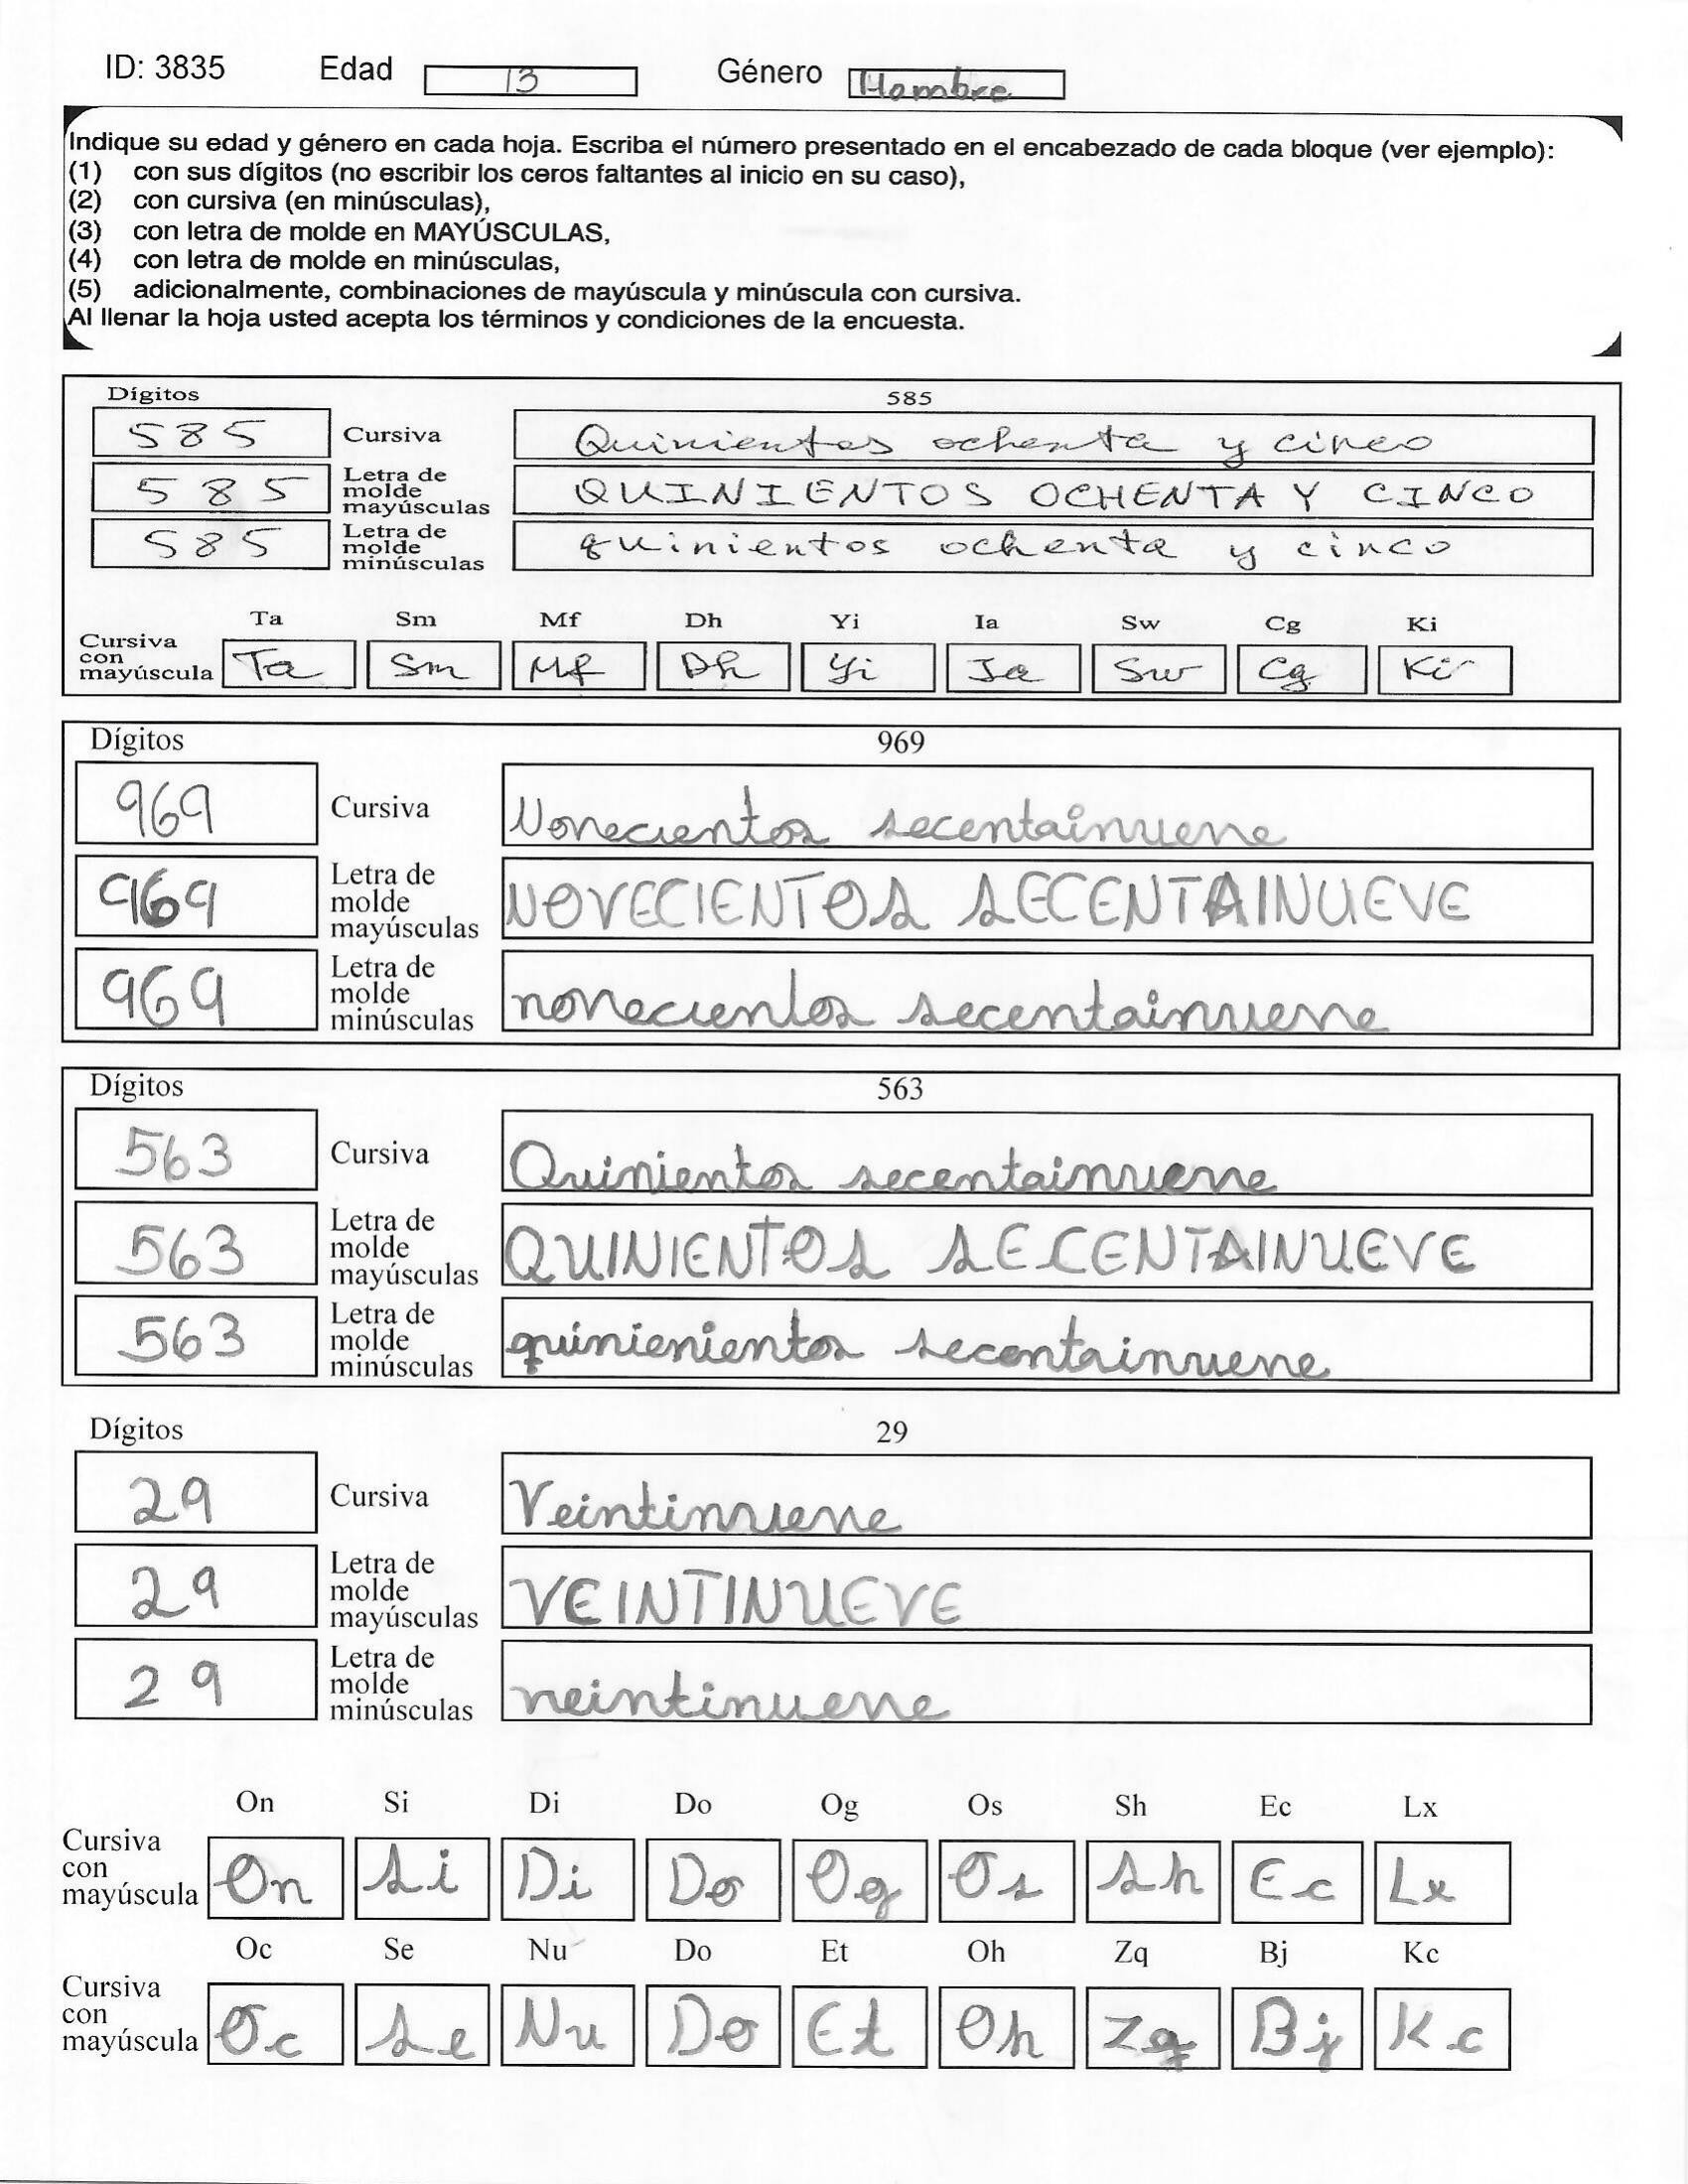 ID: 3835 Edad 13 Género Hombre
Indique su edad y género en cada hoja. Escriba el número presentado en el encabezado de cada bloque (ver ejemplo):
(1) con sus dígitos (no escribir los ceros faltantes al inicio en su caso),
(2) con cursiva (en minúsculas),
(3) con letra de molde en MAYÚSCULAS,
(4) con letra de molde en minúsculas,
(5) adicionalmente, combinaciones de mayúscula y minúscula con cursiva.
Al llenar la hoja usted acepta los términos y condiciones de la encuesta.
Dígitos 585
585 Cursiva Quinientos ochenta y cinco
585 Letra de molde mayúsculas QUINIENTOS OCHENTA Y CINCO
585 Letra de molde minúsculas quinientos ochenta y cinco
Ta Sm Mf Dh Yi Ia Sw Cg Ki
Cursiva con mayúscula Ta Sm Mf Dh Yi Ia Sw Cg Ki
Dígitos 969
969 Cursiva Novecientos secentainueve
969 Letra de molde mayúsculas NOVECIENTOS SECENTAINUEVE
969 Letra de molde minúsculas novecientos secentainueve
Dígitos 563
563 Cursiva Quinientos secentainueve
563 Letra de molde mayúsculas QUINIENTOS SECENTAINUEVE
563 Letra de molde minúsculas quinienientos secentainueve
Dígitos 29
29 Cursiva Veintinueve
29 Letra de molde mayúsculas VEINTINUEVE
29 Letra de molde minúsculas veintinueve
On Si Di Do Og Os Sh Ec Lx
Cursiva con mayúscula On Si Di Do Og Os Sh Ec Lx
Oc Se Nu Do Et Oh Zq Bj Kc
Cursiva con mayúscula Oc Se Nu Do Et Oh Zq Bj Kc